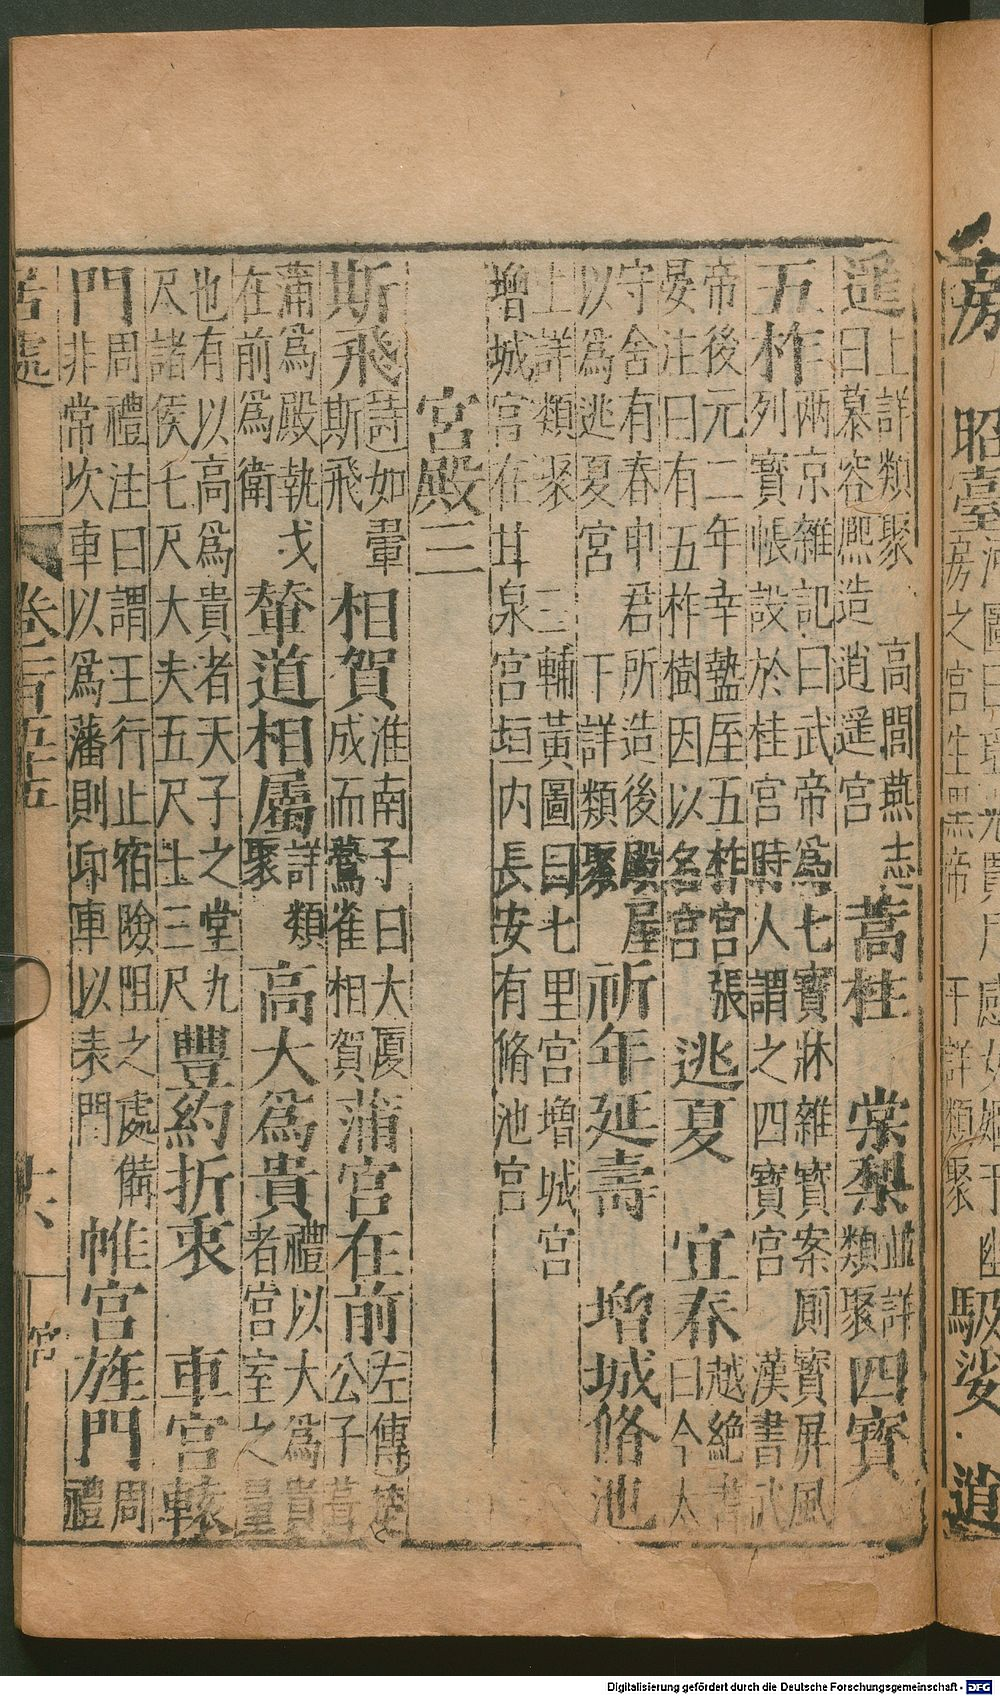 房 昭臺
河圖曰瑶光貫月感女媧于幽
房之宮生黑帝 下詳類聚
馺娑 逍
遥
上詳類聚 高閭燕志
曰慕容熙造逍遥宮
蒿桂 棠梨
並詳
類聚
四寶
五柞
兩京雜記曰武帝爲七寶牀雜寶案厠寶屏風
列寶帳設於桂宮時人謂之四寶宮 漢書武
帝後元二年幸盩厔五柞宮張
晏注曰有五柞樹因以名宮
逃夏 宜春
越絶書
曰今太
守舍有春申君所造後殿屋
以爲逃夏宮 下詳類聚
祈年延壽 增城脩池
上詳類聚 三輔黃圖曰七里宮增城宮
增城宮在甘泉宮垣内長安有脩池宮
宮殿三
斯飛
詩如翬
斯飛
相賀
淮南子曰大厦
成而鷰雀相賀
蒲宮在前
左傳楚
公子葺
蒲爲殿執戈
在前爲衛
輦道相屬
詳類
聚
高大爲貴
禮以大爲貴
者宮室之量
也有以高爲貴者天子之堂九
尺諸侯七尺大夫五尺士三尺
豐約折衷 車宮轅
門
周禮注曰謂王行止宿險阻之處備
非常次車以爲藩則卬車以表門
帷宮旌門
周
禮
居處 卷一百五十五 十六 宮
Digitalisierung gefördert durch die Deutsche Forschungsgemeinschaft - DFG